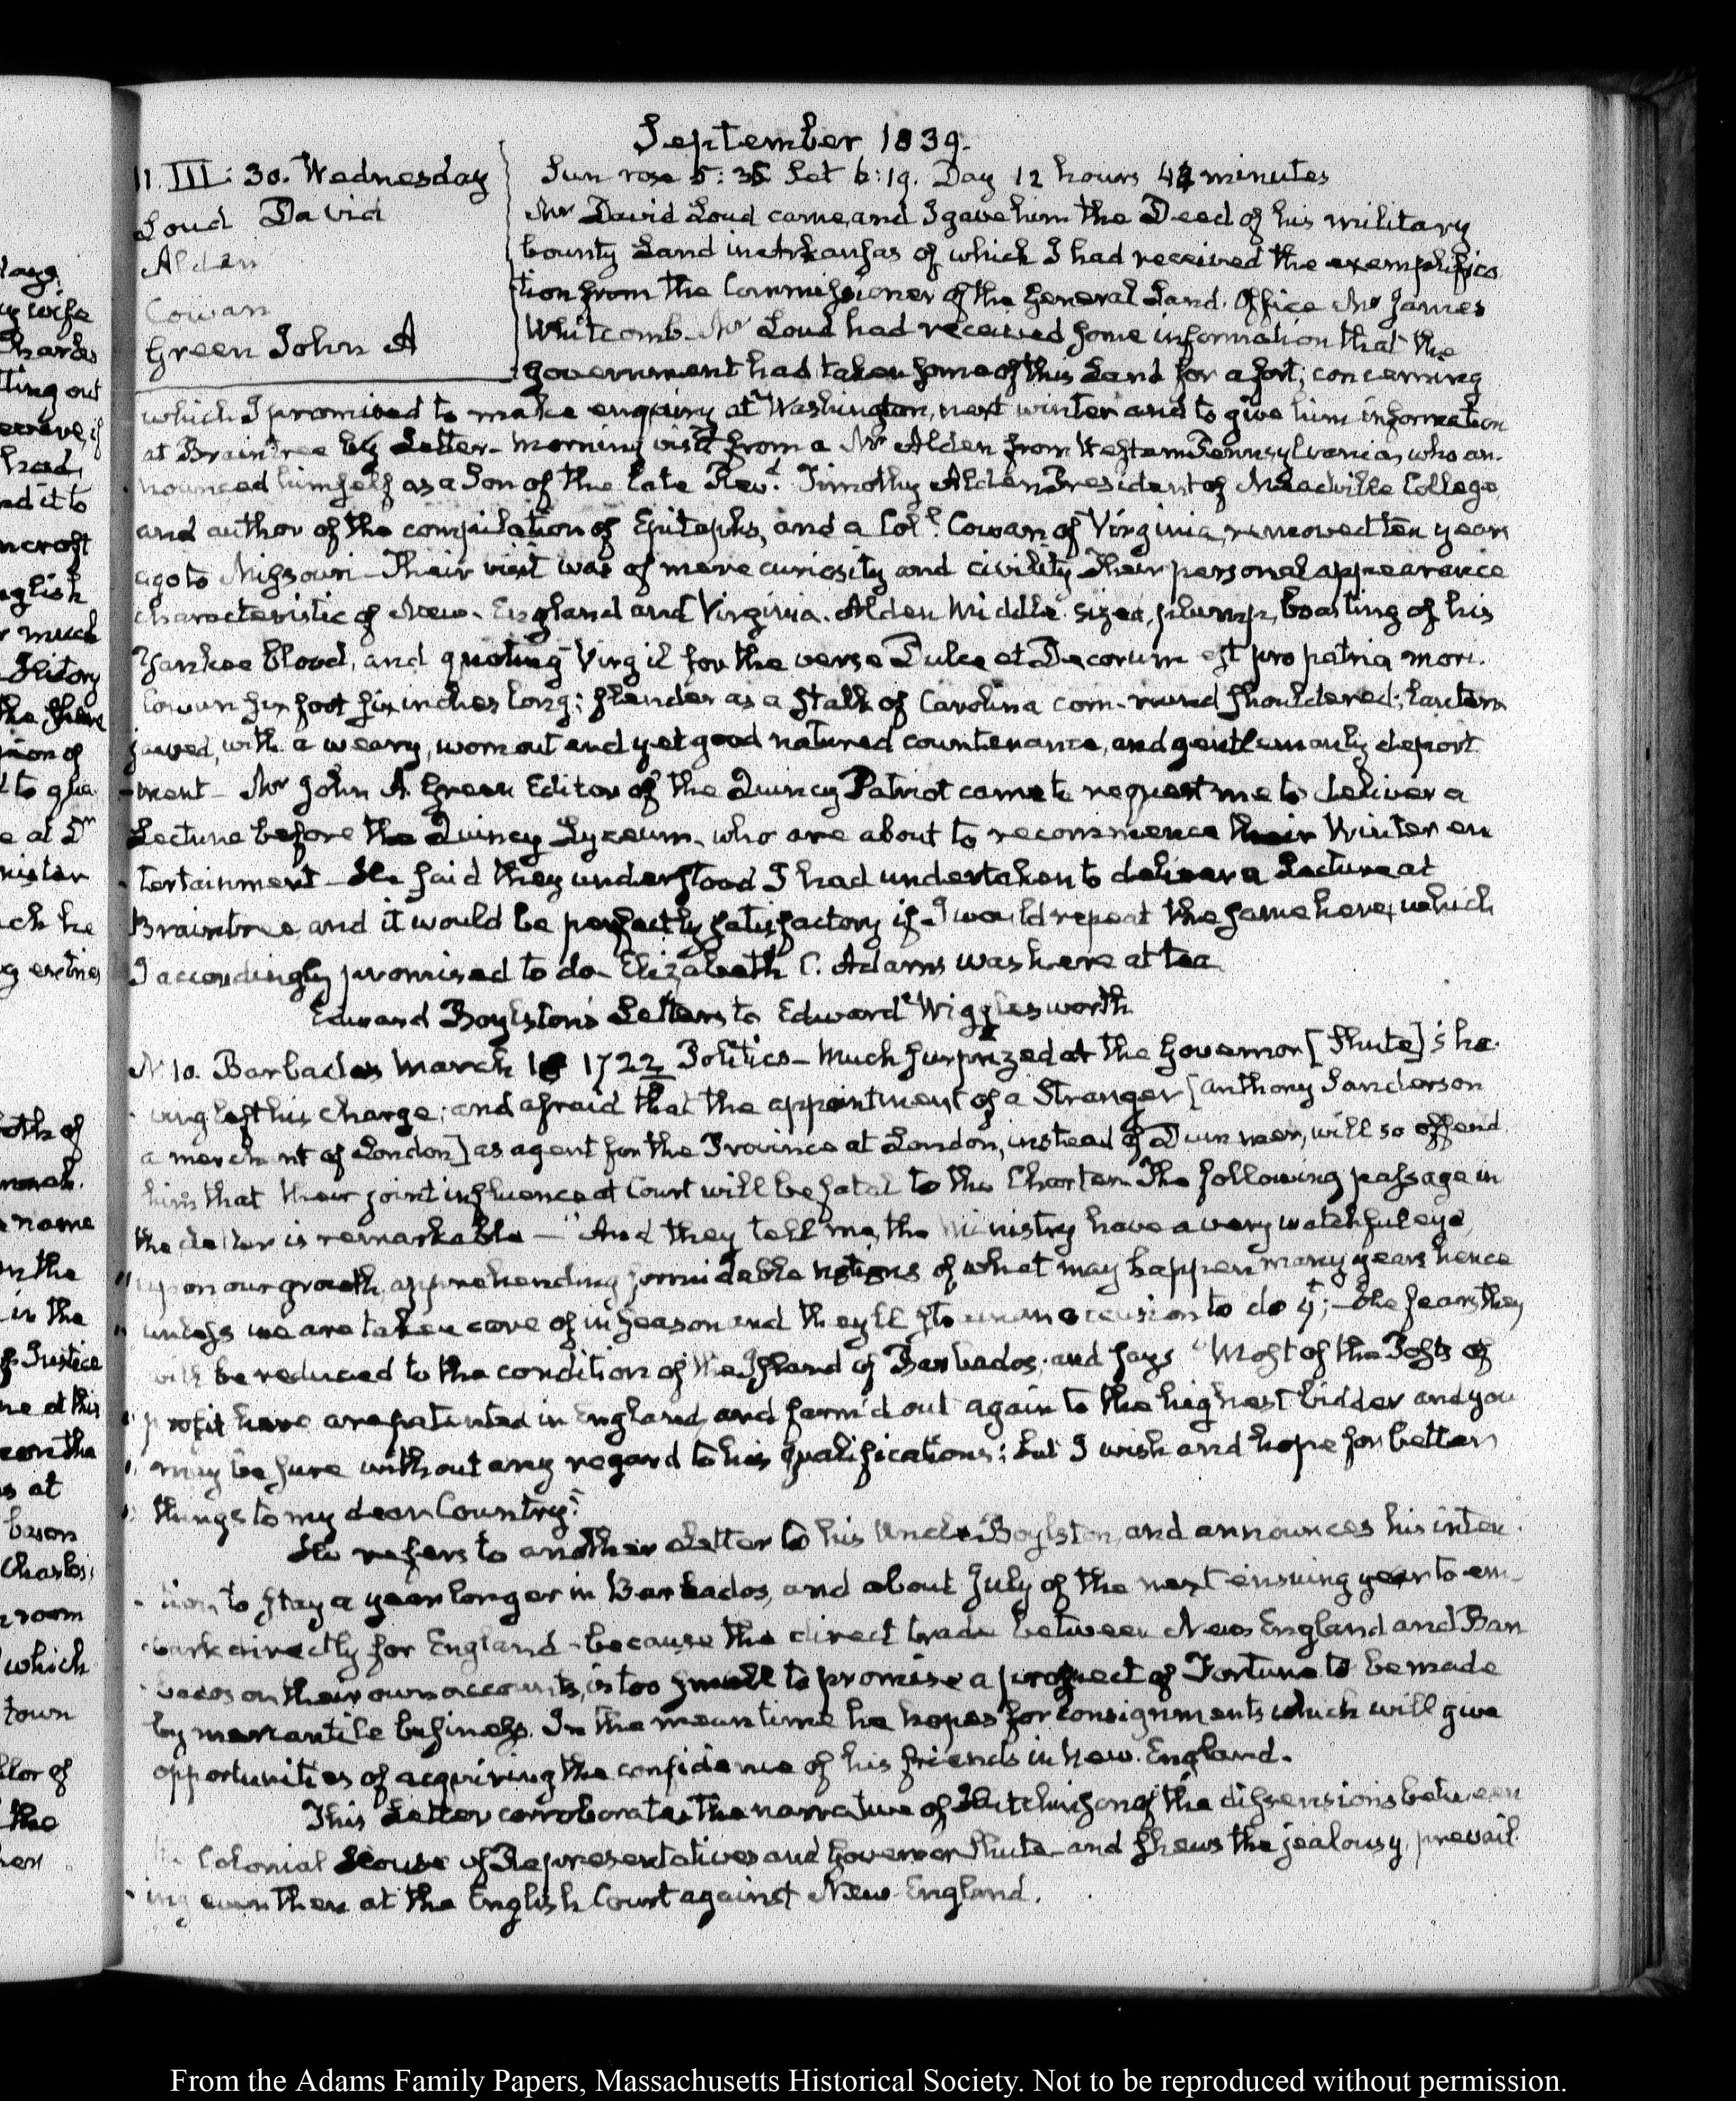 September 1839.
11. III: 30. Wednesday
Loud David
Alden
Cowan
Green John A
Sun rose 5:36 Set 6:19. Day 12 hours 42 minutes
Mr David Loud came, and I gave him the Deed of his military
bounty Land in Arkansas of which I had received the exemplifica
tion from the Commissioner of the General Land. Office Mr James
Whitcomb. Mr Loud had received some information that the
government had taken some of this Land for a fort; concerning
which I promised to make enquiry at Washington, next winter and to give him information
at Braintree by Letter. Morning visit from a Mr Alden from Western Pennsylvania, who an-
nounced himself as a Son of the late Revd. Timothy Alden President of Meadville College
and author of the compilation of Epitaphs, and a Coll. Cowan of Virginia, removed ten years
ago to Missouri – Their visit was of mere curiosity and civility. Their personal appearance
characteristic of New-England and Virginia. Alden Middle sized, plump, boasting of his
Yankee blood, and quoting Virgil for the verse Dulce et Decorum est pro patria mori.
Cowan six foot six inches long; slender as a stalk of Carolina corn- round shouldered; lantern
jawed, with a weary, worn out and yet good natured countenance, and gentlemanly deport
-ment – Mr John A. Green Editor of the Quincy Patriot came to request me to deliver a
Lecture before the Quincy Lyceum, who are about to recommence their Winter en
-tertainment – He said they understood I had undertaken to deliver a Lecture at
Braintree and it would be perfectly satisfactory if I would repeat the same here, which
I accordingly promised to do – Elizabeth C. Adams was here at tea
Edward Boylston's Letters to Edward Wigglesworth
N. 10. Barbados March 18 1722 Politics – Much surprized at the Governor [Shute]'s ha-
-ving left his charge; and afraid that the appointment of a Stranger [Anthony Sanderson
a merchant of London] as agent for the Province at London, instead of Dummer, will so offend
him that their joint influence at Court will be fatal to the Charter. The following passage in
the Letter is remarkable – "And they tell me, the Ministry have a very watchful eye
"upon our growth, apprehending formidable notions of what may happen many years hence
"unless we are taken care of in season and they'll not want occasion to do it; – He fears they
will be reduced to the condition of the Island of Barbados, and says "Most of the Posts of
"profit here are patented in England, and farm'd out again to the highest bidder and you
"may be sure without any regard to his qualifications; but I wish and hope for better
"things to my dear Country."
He refers to another Letter to his Uncle Boylston, and announces his inten-
-tion to stay a year longer in Barbados, and about July of the next ensuing year to em-
-bark directly for England – because the direct trade between New England and Bar
-bados on their own accounts, is too small to promise a prospect of Fortune to be made
by mercantile business. In the mean time he hopes for consignments which will give
opportunities of acquiring the confidence of his friends in New. England.
This Letter corroborates the narrative of Hutchinson of the dissensions between
the Colonial House of Representatives and Governor Shute and shews the jealousy prevail
-ing even then at the English Court against New-England.
From the Adams Family Papers, Massachusetts Historical Society. Not to be reproduced without permission.